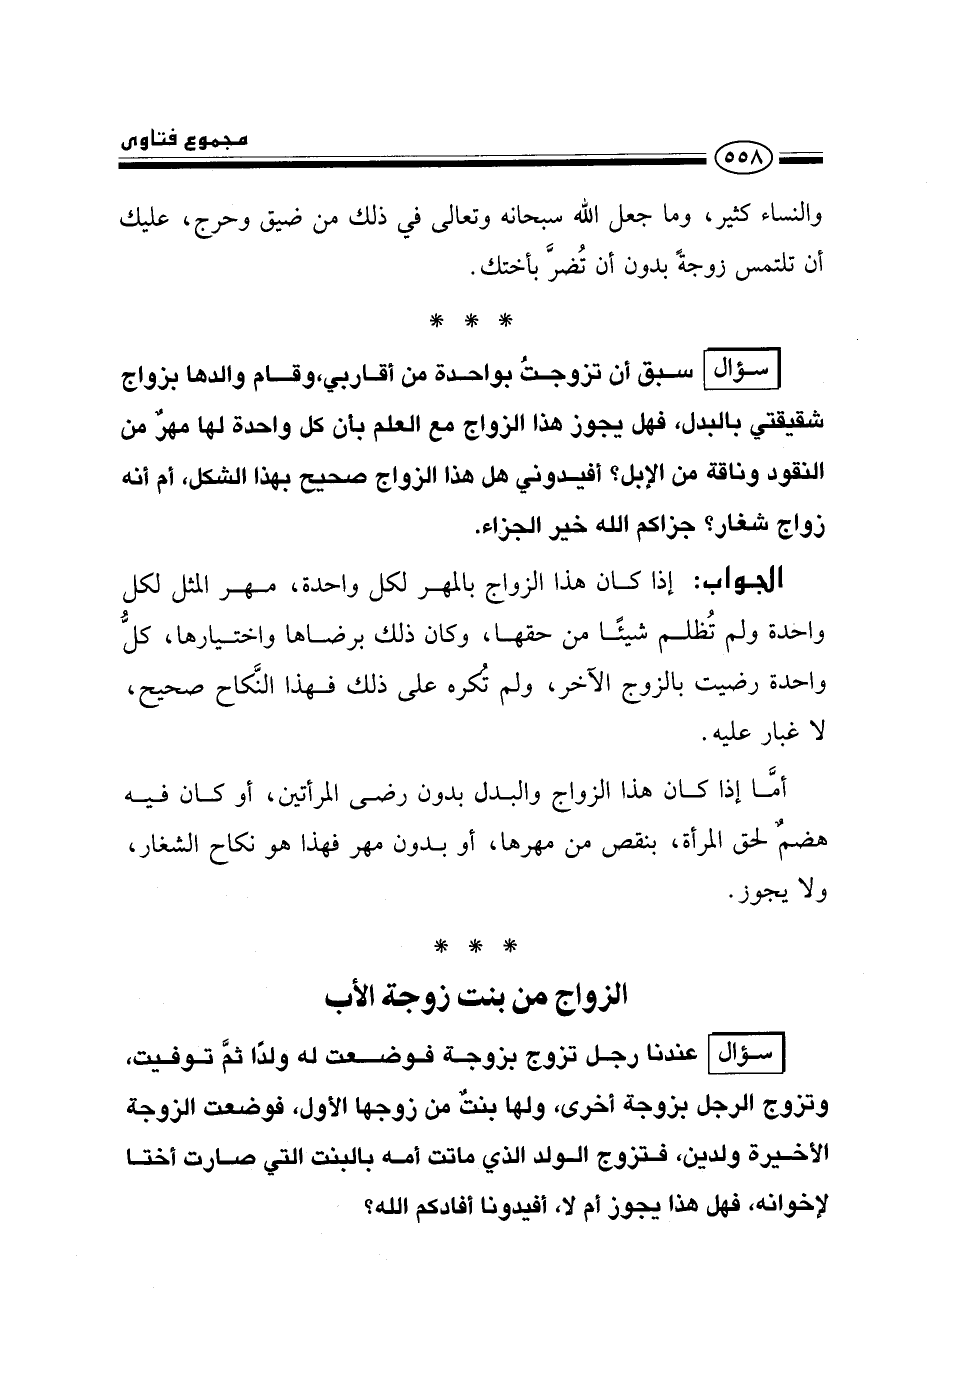 مجموع فتاوى
٥٥٨
والنساء كثير، وما جعل الله سبحانه وتعالى في ذلك من ضيق وحرج، عليك
أن تلتمس زوجةً بدون أن تُضرَّ بأختك.
* * *
سؤال سبق أن تزوجتُ بواحدة من أقاربي،وقام والدها بزواج
شقيقتي بالبدل، فهل يجوز هذا الزواج مع العلم بأن كل واحدة لها مهرٌ من
النقود وناقة من الإبل؟ أفيدوني هل هذا الزواج صحيح بهذا الشكل، أم أنه
زواج شغار؟ جزاكم الله خير الجزاء.
الجواب: إذا كان هذا الزواج بالمهر لكل واحدة، مهر المثل لكل
واحدة ولم تُظلم شيئًا من حقها، وكان ذلك برضاها واختيارها، كلُّ
واحدة رضيت بالزوج الآخر، ولم تُكره على ذلك فهذا النَّكاح صحيح،
لا غبار عليه.
أمَّا إذا كان هذا الزواج والبدل بدون رضى المرأتين، أو كان فيه
هضمٌ لحق المرأة، بنقص من مهرها، أو بدون مهر فهذا هو نكاح الشغار،
ولا يجوز.
* * *
الزواج من بنت زوجة الأب
سؤال عندنا رجل تزوج بزوجة فوضعت له ولدًا ثمَّ توفيت،
وتزوج الرجل بزوجة أخرى، ولها بنتٌ من زوجها الأول، فوضعت الزوجة
الأخيرة ولدين، فتزوج الولد الذي ماتت أمه بالبنت التي صارت أختا
لإخوانه، فهل هذا يجوز أم لا، أفيدونا أفادكم الله؟